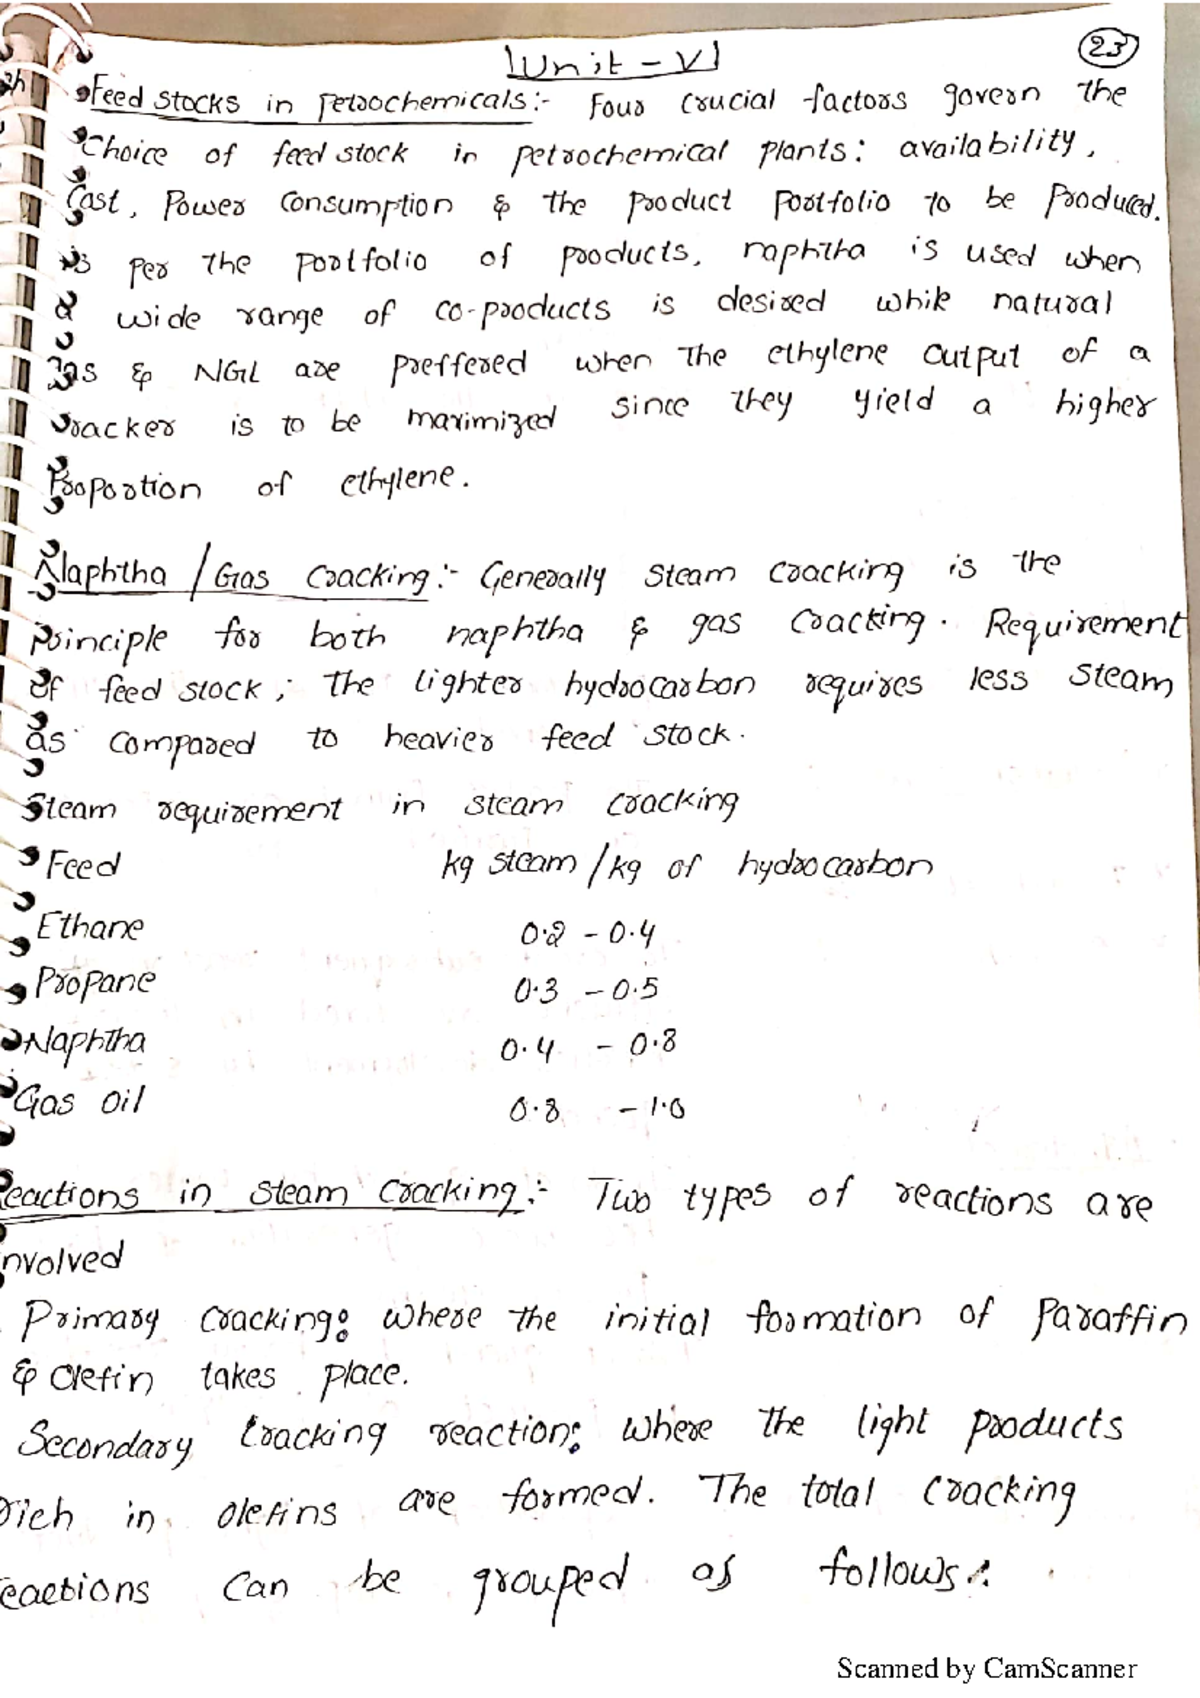 Unit - V
23
Feed stocks in petrochemicals:- Four crucial factors govern the
Choice of feed stock in petrochemical plants: availability,
Cost, Power Consumption & the product portfolio to be produced.
As per the portfolio of products, naphtha is used when
a wide range of co-products is desired while natural
gas & NGL are preffered when the ethylene output of a
cracker is to be maximized since they yield a higher
Proportion of ethylene.
Naphtha / Gas cracking:- Generally steam cracking is the
principle for both naphtha & gas cracking. Requirement
of feed stock; the lighter hydrocarbon requires less steam
as compared to heavier feed stock.
Steam requirement in steam cracking
Feed kg steam / kg of hydrocarbon
Ethane 0.2 - 0.4
Propane 0.3 - 0.5
Naphtha 0.4 - 0.8
Gas oil 0.8 - 1.0
Reactions in steam cracking:- Two types of reactions are
involved
Primary cracking: where the initial formation of paraffin
& olefin takes place.
Secondary cracking reaction: where the light products
rich in olefins are formed. The total cracking
reactions can be grouped as follows:
Scanned by CamScanner